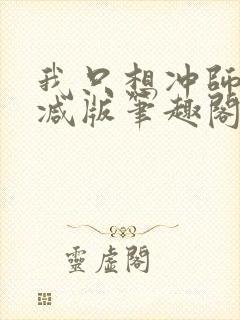 我只想冲師
减版筆趣閣
靈虛閣